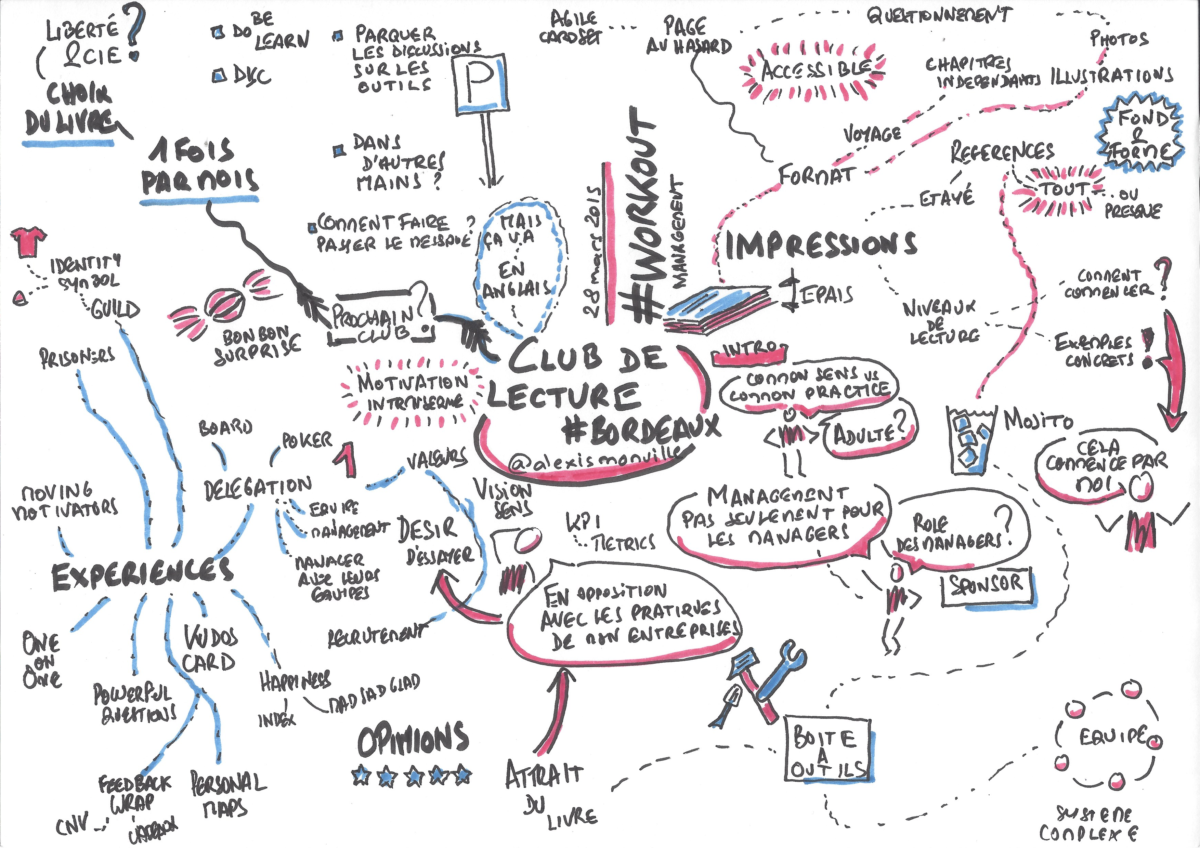 LIBERTÉ
& CIE ?
CHOIX
DU LIVRE
1 FOIS
PAR MOIS
DO BE
LEARN
DISC
PARQUER
LES DISCUSSIONS
SUR LES
OUTILS
P
DANS
D'AUTRES
MAINS ?
COMMENT FAIRE
PASSER LE MESSAGE ?
MAIS
ÇA VA
EN
ANGLAIS
PROCHAIN
CLUB ?
BONBON
SURPRISE
MOTIVATION
INTRINSÈQUE
28 mars 2015
#WORKOUT
MANAGEMENT
CLUB DE
LECTURE
#BORDEAUX
@alexismonville
AGILE
CARDSET
PAGE
AU HASARD
QUESTIONNEMENT
ACCESSIBLE
CHAPITRES
INDEPENDANTS
PHOTOS
ILLUSTRATIONS
VOYAGE
FORMAT
FOND
&
FORME
REFERENCES
ETAYÉ
TOUT
OU
PRESQUE
IMPRESSIONS
EPAIS
NIVEAUX
DE
LECTURE
COMMENT
COMMENCER ?
EXEMPLES
CONCRETS !
INTRO
COMMON SENS VS
COMMON PRACTICE
ADULTE ?
MOJITO
CELA
COMMENCE PAR
MOI
MANAGEMENT
PAS SEULEMENT POUR
LES MANAGERS
ROLE
DES MANAGERS ?
SPONSOR
IDENTITY
SYMBOL
GUILD
PRISONERS
BOARD
POKER
DELEGATION
EQUIPE
MANAGEMENT
MANAGER
AVEC LEURS
EQUIPES
MOVING
MOTIVATORS
EXPERIENCES
ONE
ON
ONE
POWERFUL
QUESTIONS
KUDOS
CARD
HAPPINESS
INDEX
MAD SAD GLAD
FEEDBACK
WRAP
CNV
PERSONAL
MAPS
1
VALEURS
DESIR
D'ESSAYER
RECRUTEMENT
VISION
SENS
KPI
METRICS
EN OPPOSITION
AVEC LES PRATIQUES
DE MON ENTREPRISES
OPINIONS
ATTRAIT
DU
LIVRE
BOITE
A
OUTILS
EQUIPE
SYSTEME
COMPLEXE